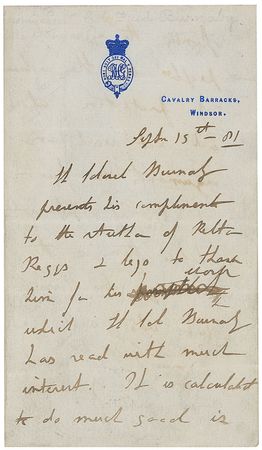 CAVALRY BARRACKS,
WINDSOR.
Septr 15th - 81
Lt Colonel Burnaby
presents his compliments
to the Author of Kilter
Reggs & begs to thank
him for his work
which Lt Col Burnaby
has read with much
interest. It is calculated
to do much good in